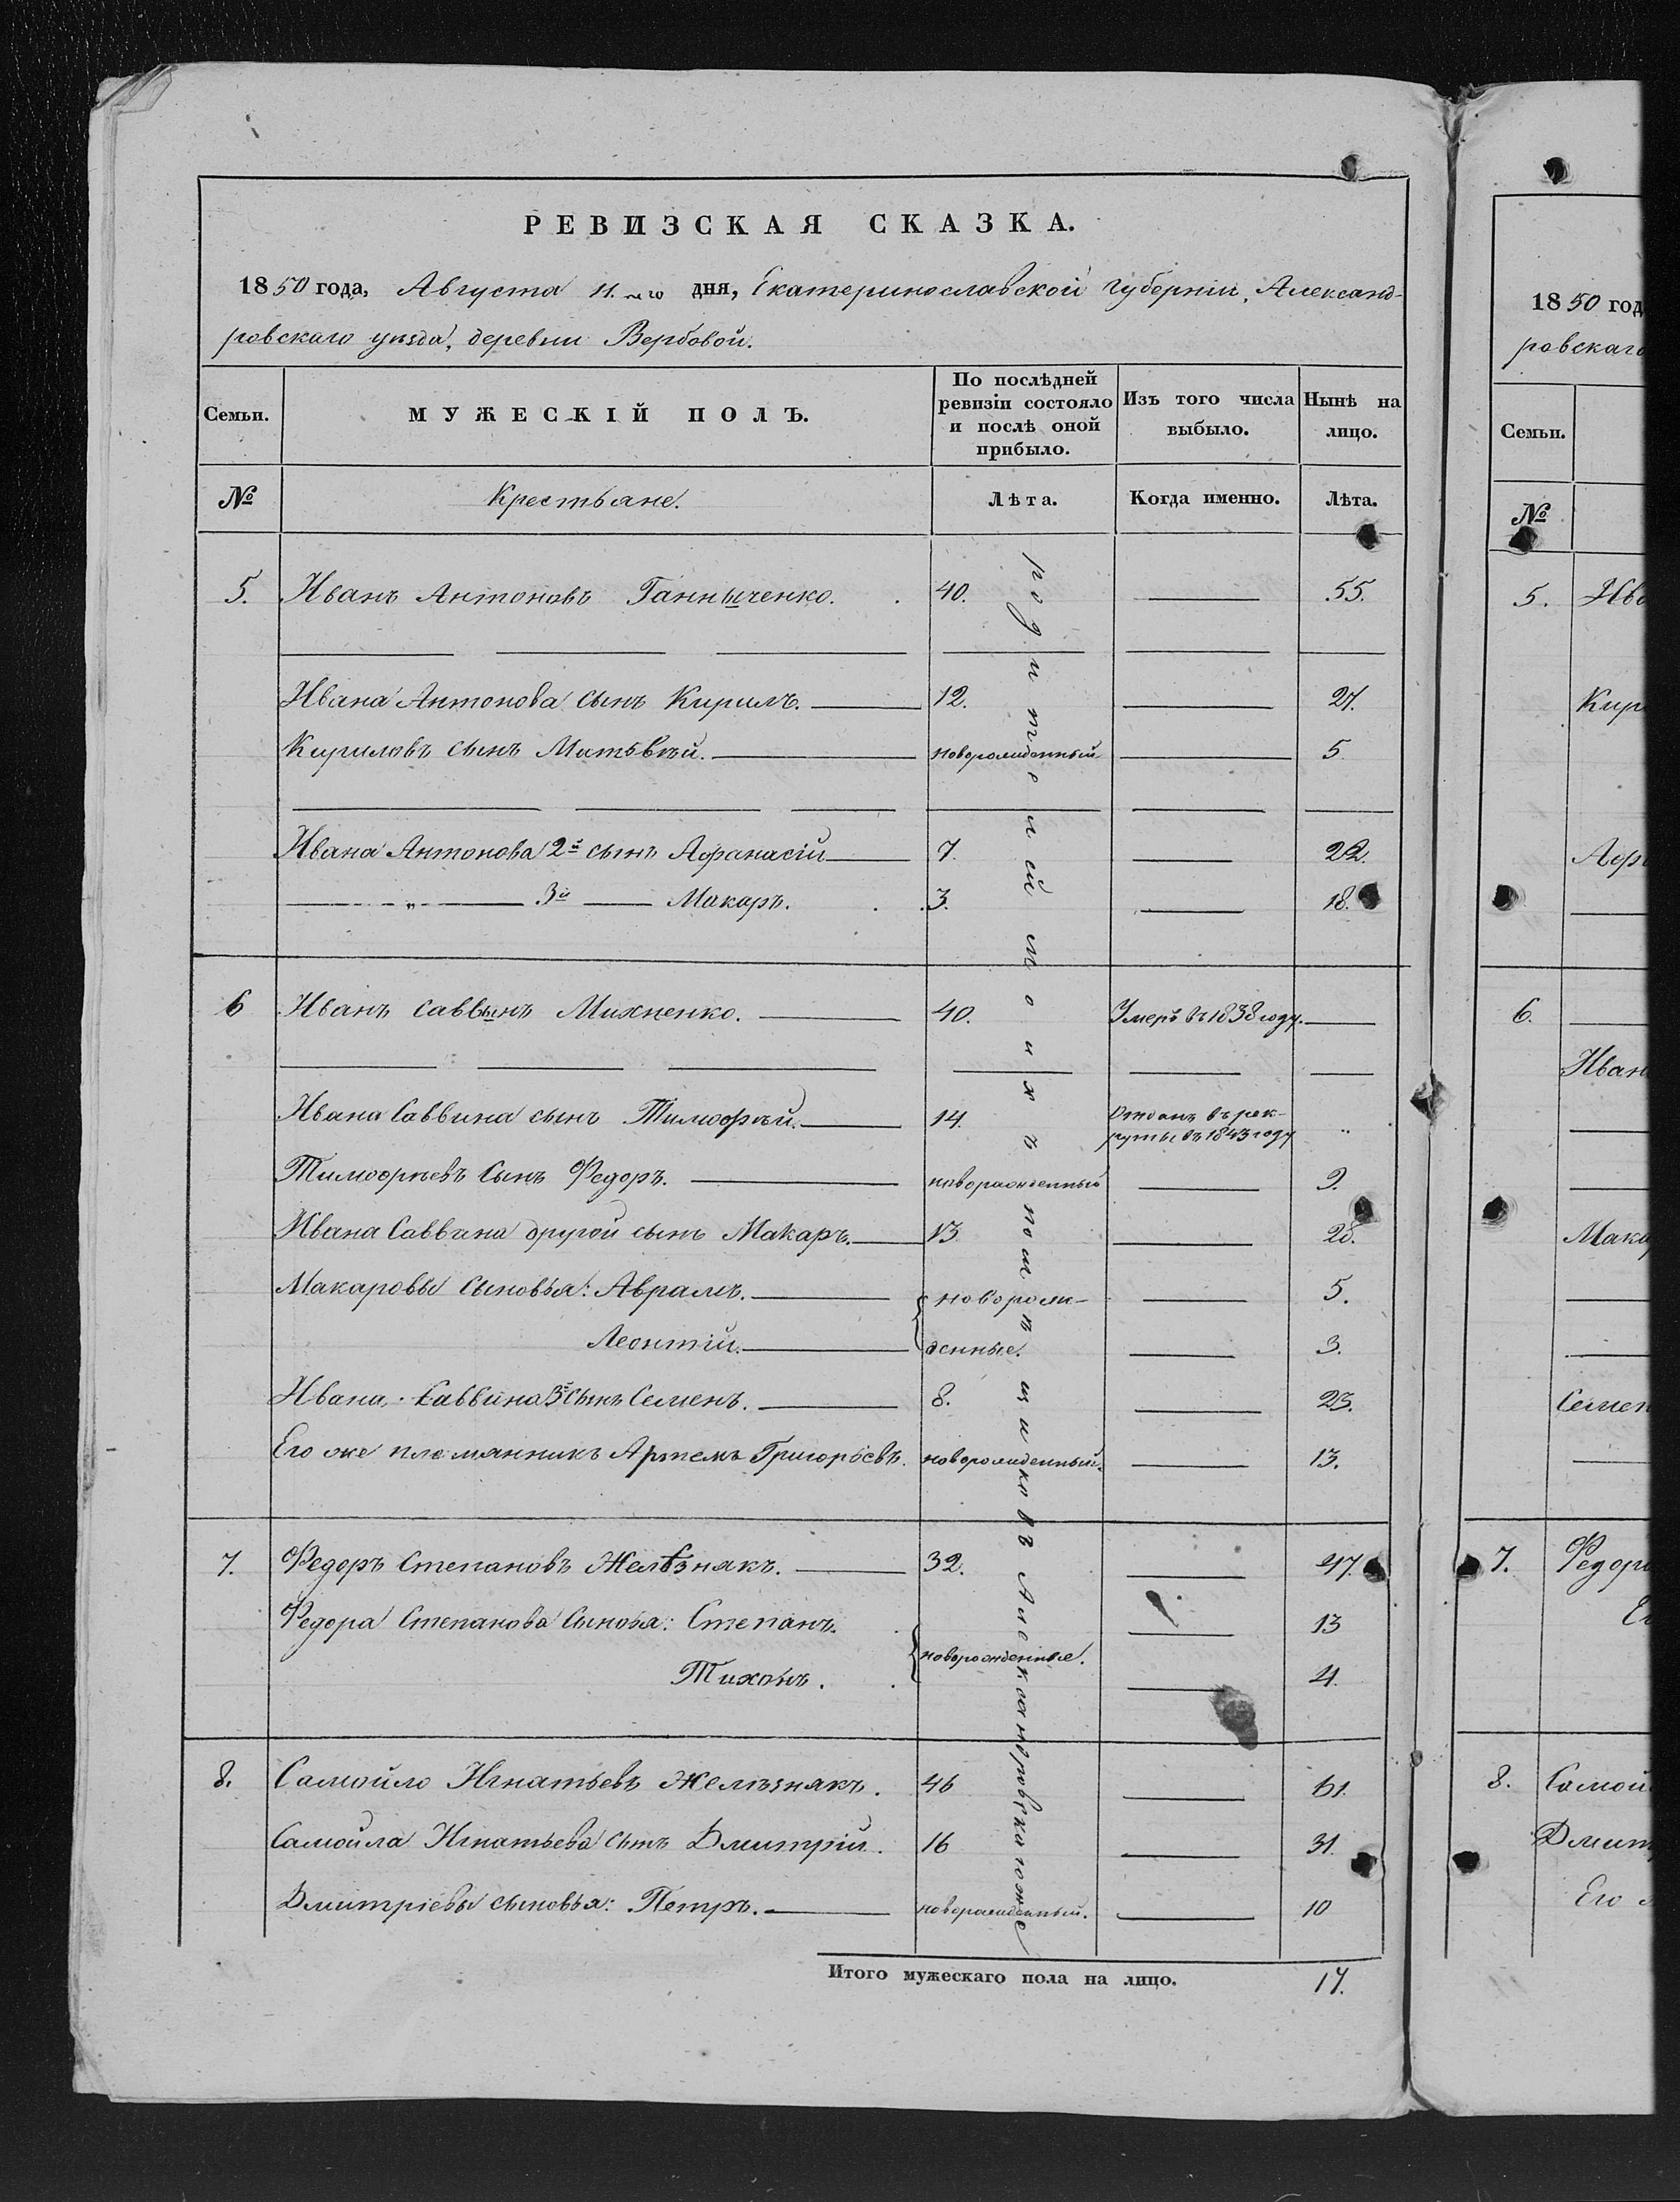 РЕВИЗСКАЯ СКАЗКА.
1850 года, Августа 11.го дня, Екатеринославской губерніи, Александ-
ровскаго уѣзда, деревни Вербовой.
Семьи. МУЖЕСКІЙ ПОЛЪ. По послѣдней ревизіи состояло и послѣ оной прибыло. Изъ того числа выбыло. Нынѣ на лицо.
№ Крестьяне. Лѣта. Когда именно. Лѣта.
5. Иванъ Антоновъ Ганныченко. 40. 55.
Ивана Антонова сынъ Кирилъ. 12. 27.
Кириловъ сынъ Матьвѣй. новорожденный 5
Ивана Антонова 2й сынъ Афанасій 7. 22.
" 3й Макаръ. 3. 18.
6 Иванъ Саввынъ Михненко. 40. Умеръ въ 1838 году.
Ивана Саввина сынъ Тимофѣй. 14. Отданъ въ рек-
руты въ 1843 году "
Тимофѣевъ сынъ Федоръ. новорожденный 9.
Ивана Саввина другой сынъ Макаръ. 13 28.
Макаровы сыновья: Аврамъ. новорож- 5.
Леонтій. денные. 3.
Ивана Саввина 3й сынъ Семенъ. 8. 23.
Его же племянникъ Артемъ Григорьевъ. новорожденный. 13.
7. Федоръ Степановъ Желѣзнякъ. 32. 47.
Федора Степанова сыновья: Степанъ. новорожденные. 13
Тихонъ. 4.
8. Самойло Игнатьевъ Желѣзнякъ. 46 61.
Самойла Игнатьева сынъ Дмитрій. 16 31.
Дмитріевы сыновья: Петръ. новорожденный. 10
родителей моихъ помѣщиковъ Александровскаго же
Итого мужескаго пола на лицо. 17.
1850 год
ровскаго
Семьи.
№
5. Ива
Кири
Афа
6.
Иван
Мака
Семен
7. Федора
Ег
8. Самой
Дмит
Его